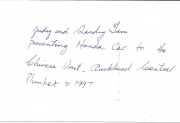 Judy and Sandy Tam
presenting Honda Car to the
Chinese Unit - Auckland Central
Plunket 1997